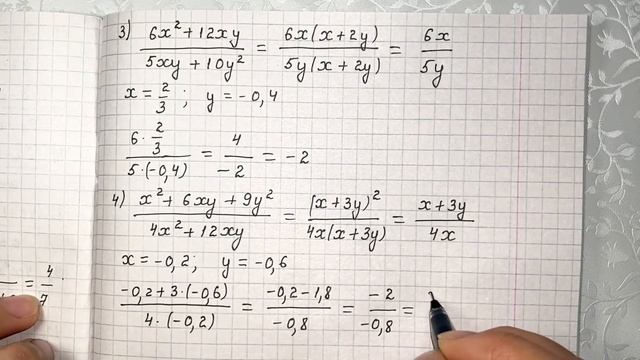 3) (6x² + 12xy)/(5xy + 10y²) = (6x(x + 2y))/(5y(x + 2y)) = 6x/5y
x = 2/3 ; y = -0,4
(6 · 2/3)/(5·(-0,4)) = 4/-2 = -2
4) (x² + 6xy + 9y²)/(4x² + 12xy) = (x + 3y)²/(4x(x + 3y)) = (x + 3y)/4x
x = -0,2; y = -0,6
(-0,2 + 3·(-0,6))/(4·(-0,2)) = (-0,2 - 1,8)/(-0,8) = -2/-0,8 =
= 4/7